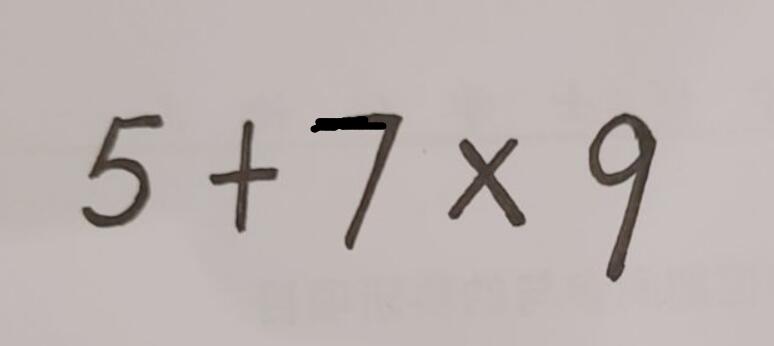 5 + 7 × 9